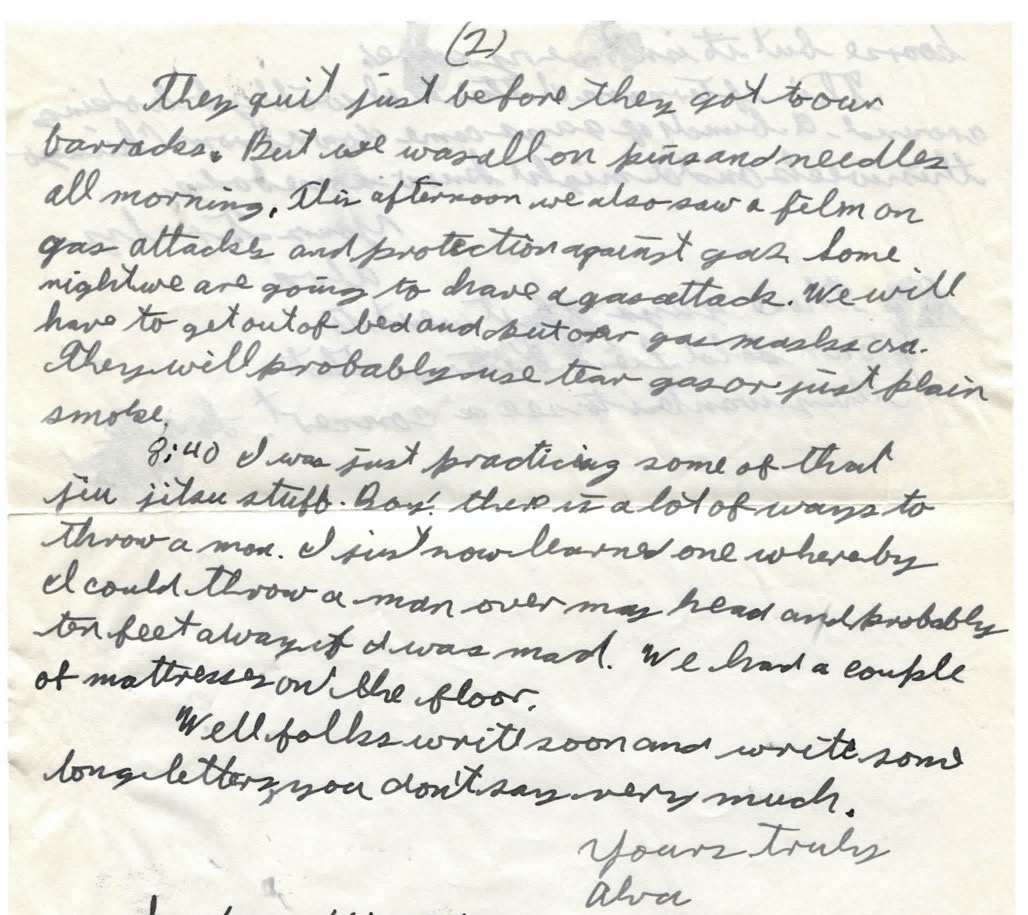 (2)
They quit just before they got to our
barracks. But we was all on pins and needles
all morning. This afternoon we also saw a film on
gas attacks and protection against gas. Some
night we are going to have a gas attack. We will
have to get out of bed and put our gas masks on.
They will probably use tear gas or just plain
smoke.
8:40 I was just practicing some of that
jiu jitsu stuff. Boy! there is a lot of ways to
throw a man. I just now learned one whereby
I could throw a man over my head and probably
ten feet away if I was mad. We had a couple
of mattresses on the floor.
Well folks write soon and write some
long letters, you don't say very much.
Yours truly
Alva